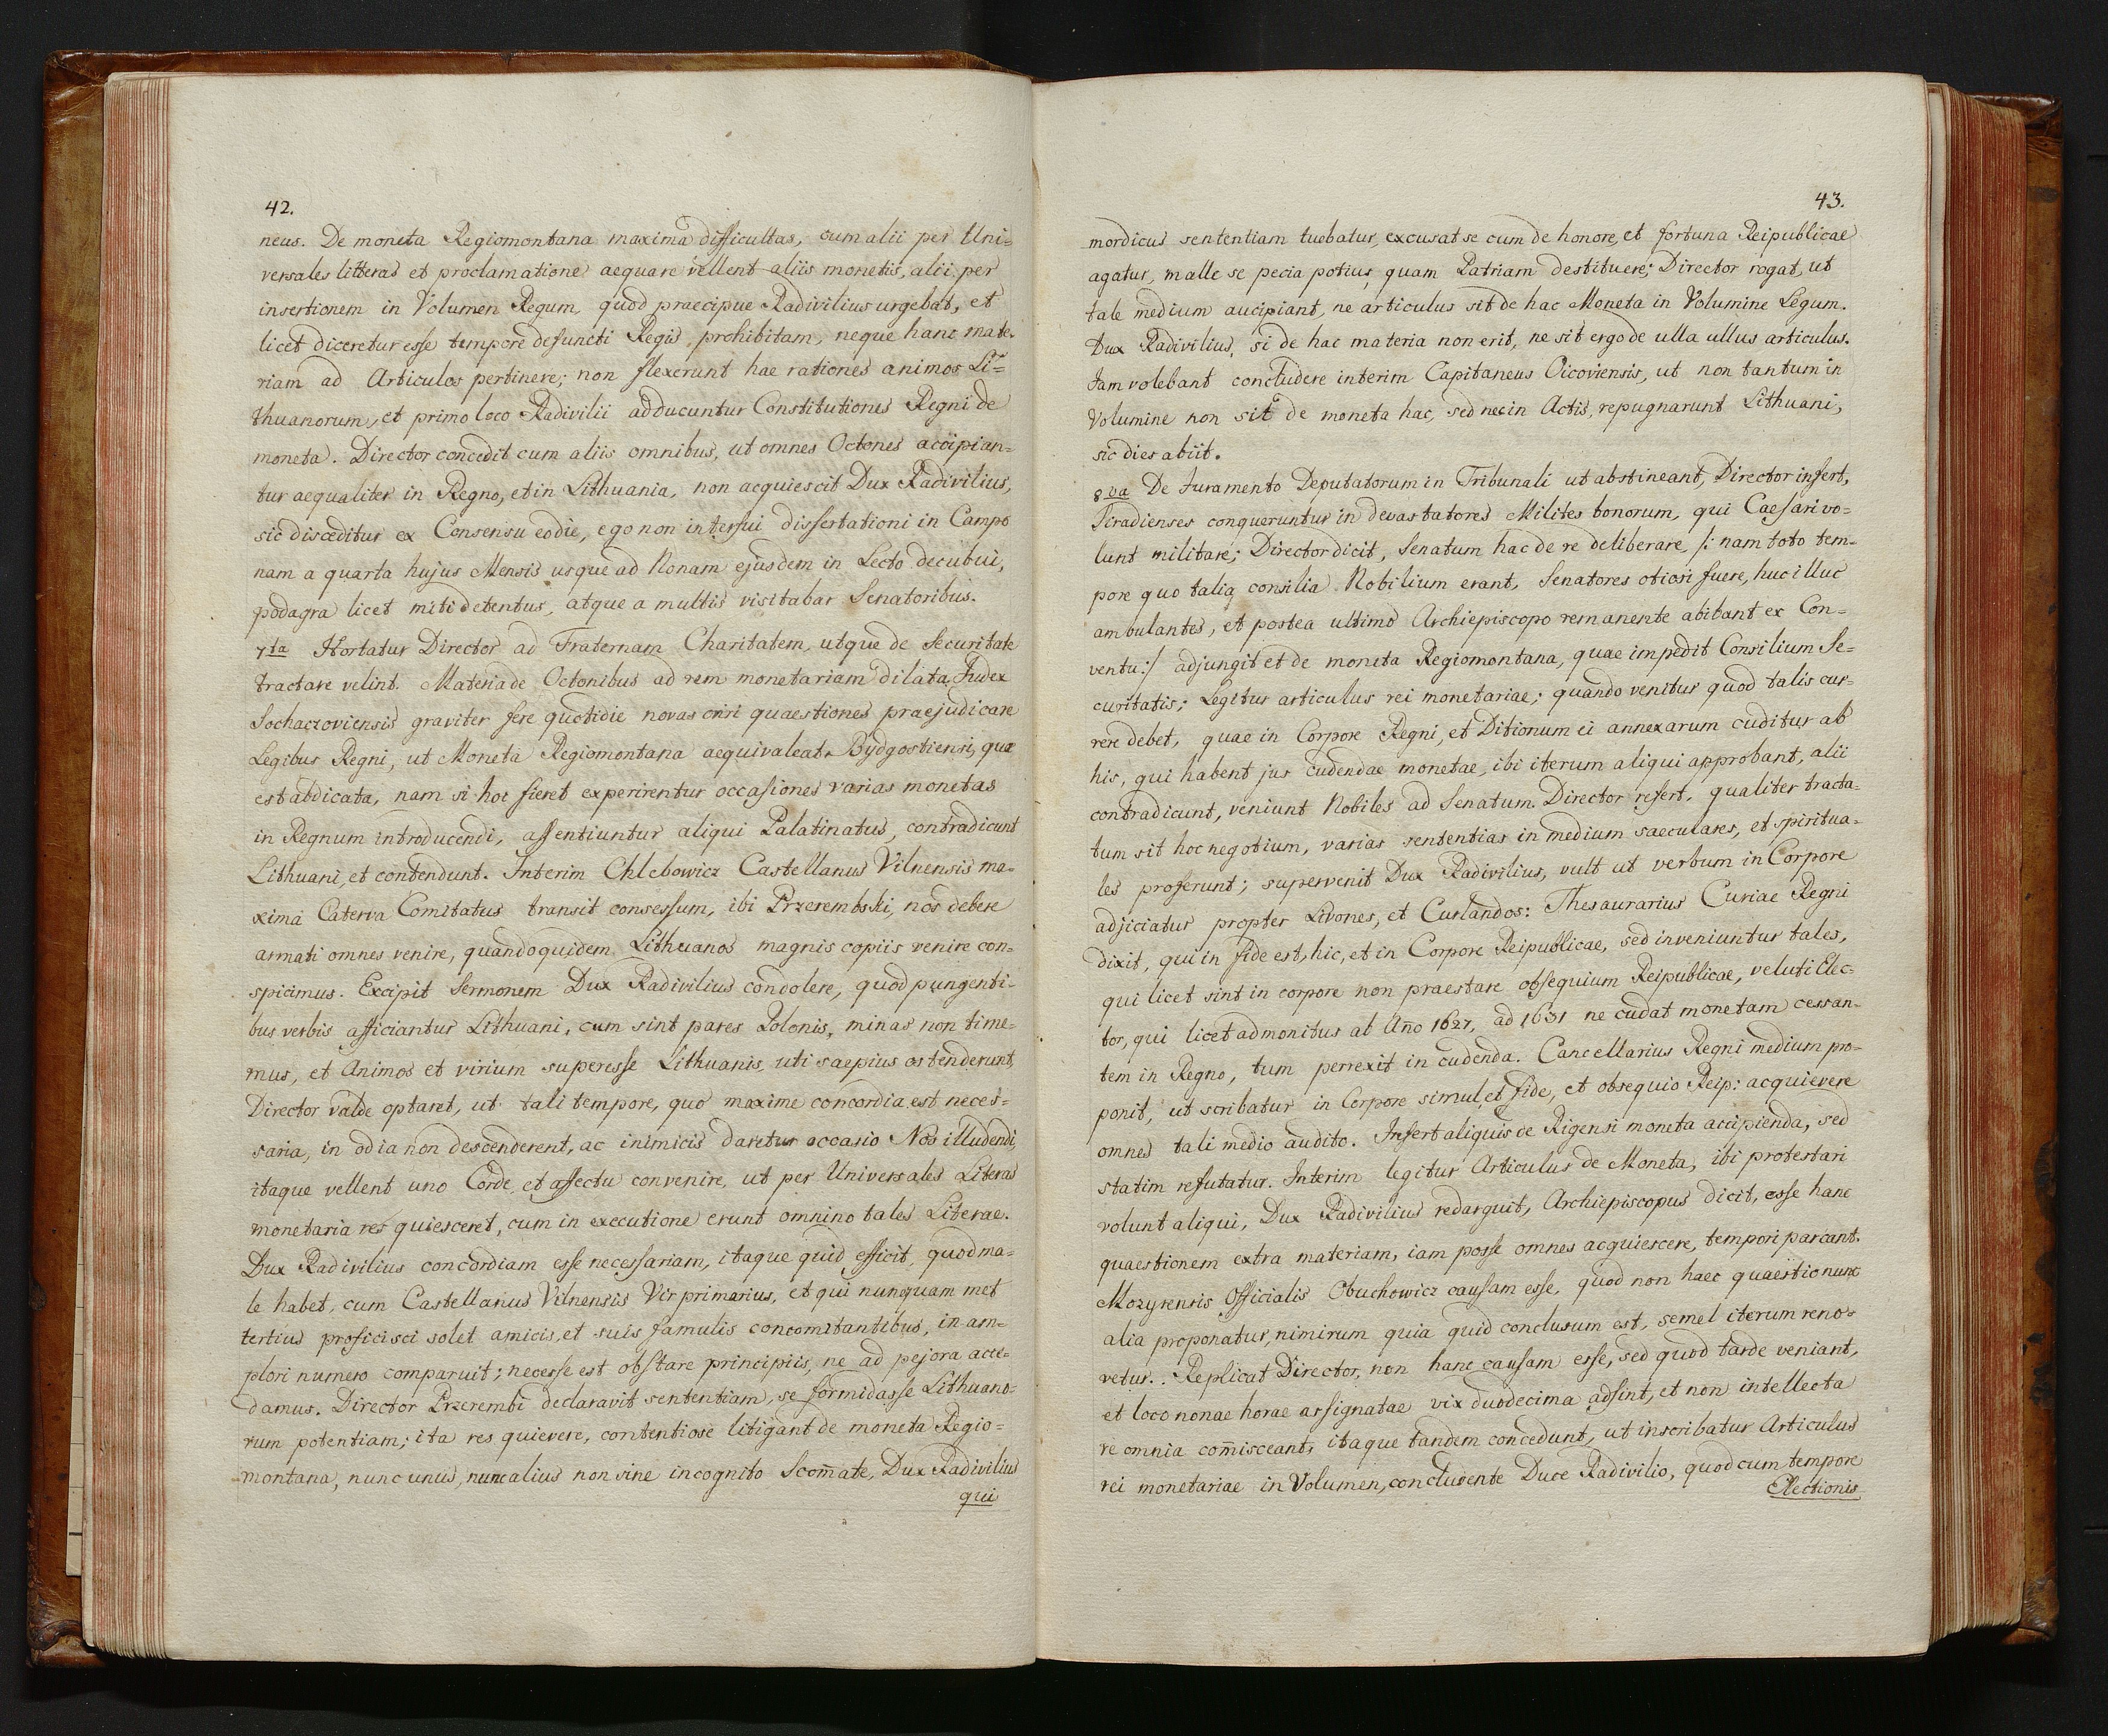 42.
neus. De moneta Regiomontana maxima difficultas, cum alii per Uni=
versales litteras et proclamatione aequare vellent aliis monetis, alii per
insertionem in Volumen Regum, quod praecipue Radivilius urgebat, et
licet diceretur esse tempore defuncti Regis prohibitam, neque hanc mate=
riam ad Articulos pertinere; non flexerunt hae rationes animos Li=
thuanorum, et primo loco Radivilii adducuntur Constitutiones Regni de
moneta. Director concedit cum aliis omnibus, ut omnes Octones accipian=
tur aequaliter in Regno, et in Lithuania, non acquiescit Dux Radivilius,
sic disceditur ex Consensu eodie, ego non interfui dissertationi in Campo
nam a quarta hujus Mensis usque ad Nonam ejusdem in Lecto decubui,
podagra licet miti detentus, atque a multis visitabar Senatoribus.
7ta Hortatur Director ad Fraternam Charitatem, utque de Securitate
tractare velint. Materia de Octonibus ad rem monetariam dilata, Judex
Sochaczoviensis graviter fere quotidie novas oriri quaestiones praejudicare
Legibus Regni, ut Moneta Regiomontana aequivaleat Bydgostiensi, quae
est abdicata, nam si hoc fieret experirentur occasiones varias monetas
in Regnum introducendi, assentiuntur aliqui Palatinatus, contradicunt
Lithuani, et contendunt. Interim Chlebowicz Castellanus Vilnensis ma=
xima Caterva Comitatus transit consessum, ibi Przerembski, nos debere
armati omnes venire, quandoquidem Lithuanos magnis copiis venire con=
spicimus. Excipit Sermonem Dux Radivilius condolere, quod pungenti=
bus verbis afficiantur Lithuani, cum sint pares Polonis, minas non time=
mus, et Animos et virium superesse Lithuanis, uti saepius ostenderunt,
Director valde optaret, ut tali tempore, quo maxime concordia est neces=
saria, in odia non descenderent, ac inimicis daretur occasio Nos illudendi,
itaque vellent uno Corde, et affectu convenire, ut per Universales Literas
monetaria res quiesceret, cum in executione erunt omnino tales Literae.
Dux Radivilius concordiam esse necessariam, itaque quid efficit, quod ma=
le habet, cum Castellanus Vilnensis Vir primarius, et qui nunquam met
tertius proficisci solet amicis, et suis famulis concomitantibus, in am=
plori numero comparuit; necesse est obstare principiis, ne ad pejora acce=
damus. Director Przerembi declaravit sententiam, se formidasse Lithuano=
rum potentiam; ita res quievere, contentiose litigant de moneta Regio=
montana, nunc unus, nunc alius non sine incognito Scom̄ate, Dux Radivilius
qui
43.
mordicus sententiam tuebatur, excusat se cum de honore, et fortuna Reipublicae
agatur, malle se pecia potius, quam Patriam destituere; Director rogat, ut
tale medium aucipiant, ne articulus sit de hac Moneta in Volumine Legum.
Dux Radivilius, si de hac materia non erit, ne sit ergo de ulla ullus articulus.
Jam volebant concludere interim Capitaneus Oicoviensis, ut non tantum in
Volumine non sit de moneta hac, sed nec in Actis, repugnarunt Lithuani,
sic dies abiit.
8va De Juramento Deputatorum in Tribunali ut abstineant, Director infert,
Siradienses conqueruntur in devastatores Milites bonorum, qui Caesari vo=
lunt militare; Director dicit, Senatum hac de re deliberare, /: nam toto tem=
pore quo talia consilia Nobilium erant, Senatores otiosi fuere, huc illuc
ambulantes, et postea ultimo Archiepiscopo remanente abibant ex Con=
ventu:/ adjungit et de moneta Regiomontana, quae impedit Consilium Se=
curitatis; Legitur articulus rei monetariae; quando venitur quod talis cur=
rere debet, quae in Corpore Regni, et Ditionum ei annexarum cuditur ab
his, qui habent jus cudendae monetae, ibi iterum aliqui approbant, alii
contradicunt, veniunt Nobiles ad Senatum. Director refert, qualiter tracta=
tum sit hoc negotium, varias sententias in medium saeculares, et spiritua=
les proferunt; supervenit Dux Radivilius, vult ut verbum in Corpore
adjiciatur propter Livones, et Curlandos: Thesaurarius Curiae Regni
dixit, qui in fide est, hic, et in Corpore Reipublicae, sed inveniuntur tales,
qui licet sint in corpore non praestare obsequium Reipublicae, veluti Elec=
tor, qui licet admonitus ab An̄o 1627, ad 1631 ne cudat monetam cessan=
tem in Regno, tum perrexit in cudenda. Cancellarius Regni medium pro=
ponit, ut scribatur in Corpore simul, et fide, et obsequio Reip: acquievere
omnes tali medio audito. Infert aliquis de Rigensi moneta accipienda, sed
statim refutatur. Interim legitur Articulus de Moneta, ibi protestari
volunt aliqui, Dux Radivilius redarguit, Archiepiscopus dicit, esse hanc
quaestionem extra materiam, iam posse omnes acquiescere, tempori parcant.
Mozyrensis Officialis Obuchowicz causam esse, quod non haec quaestio nunc
alia proponatur, nimirum quia quid conclusum est, semel iterum reno=
vetur. Replicat Director, non hanc causam esse, sed quod tarde veniant,
et loco nonae horae assignatae vix duodecima adsint, et non intellecta
re omnia com̄isceant, itaque tandem concedunt, ut inscribatur Articulus
rei monetariae in Volumen, concludente Duce Radivilio, quod cum tempore
Electionis